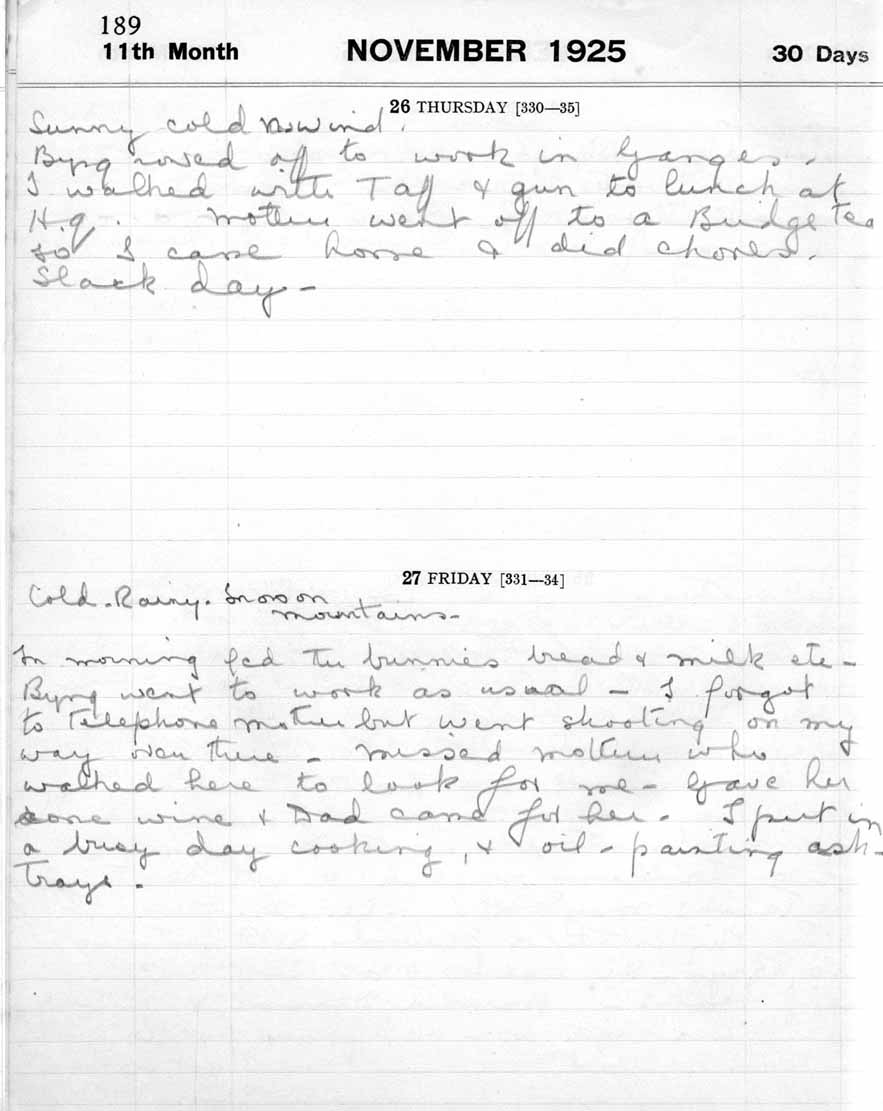 189
11th Month NOVEMBER 1925 30 Days
26 THURSDAY [330—35]
Sunny cold wind.
Byng rowed off to work in Ganges.
I walked with Taff & gun to lunch at
H.q. Mother went off to a Bridge Tea
so I came home & did chores.
Slack day -
27 FRIDAY [331—34]
Cold. Rainy. Snow on
mountains -
In morning fed the bunnies bread & milk etc -
Byng went to work as usual - I forgot
to telephone mother but went shooting on my
way over there - missed mother who
walked here to look for me - Gave her
some wine & Dad came for her. I put in
a busy day cooking, & oil-painting ash-
trays.